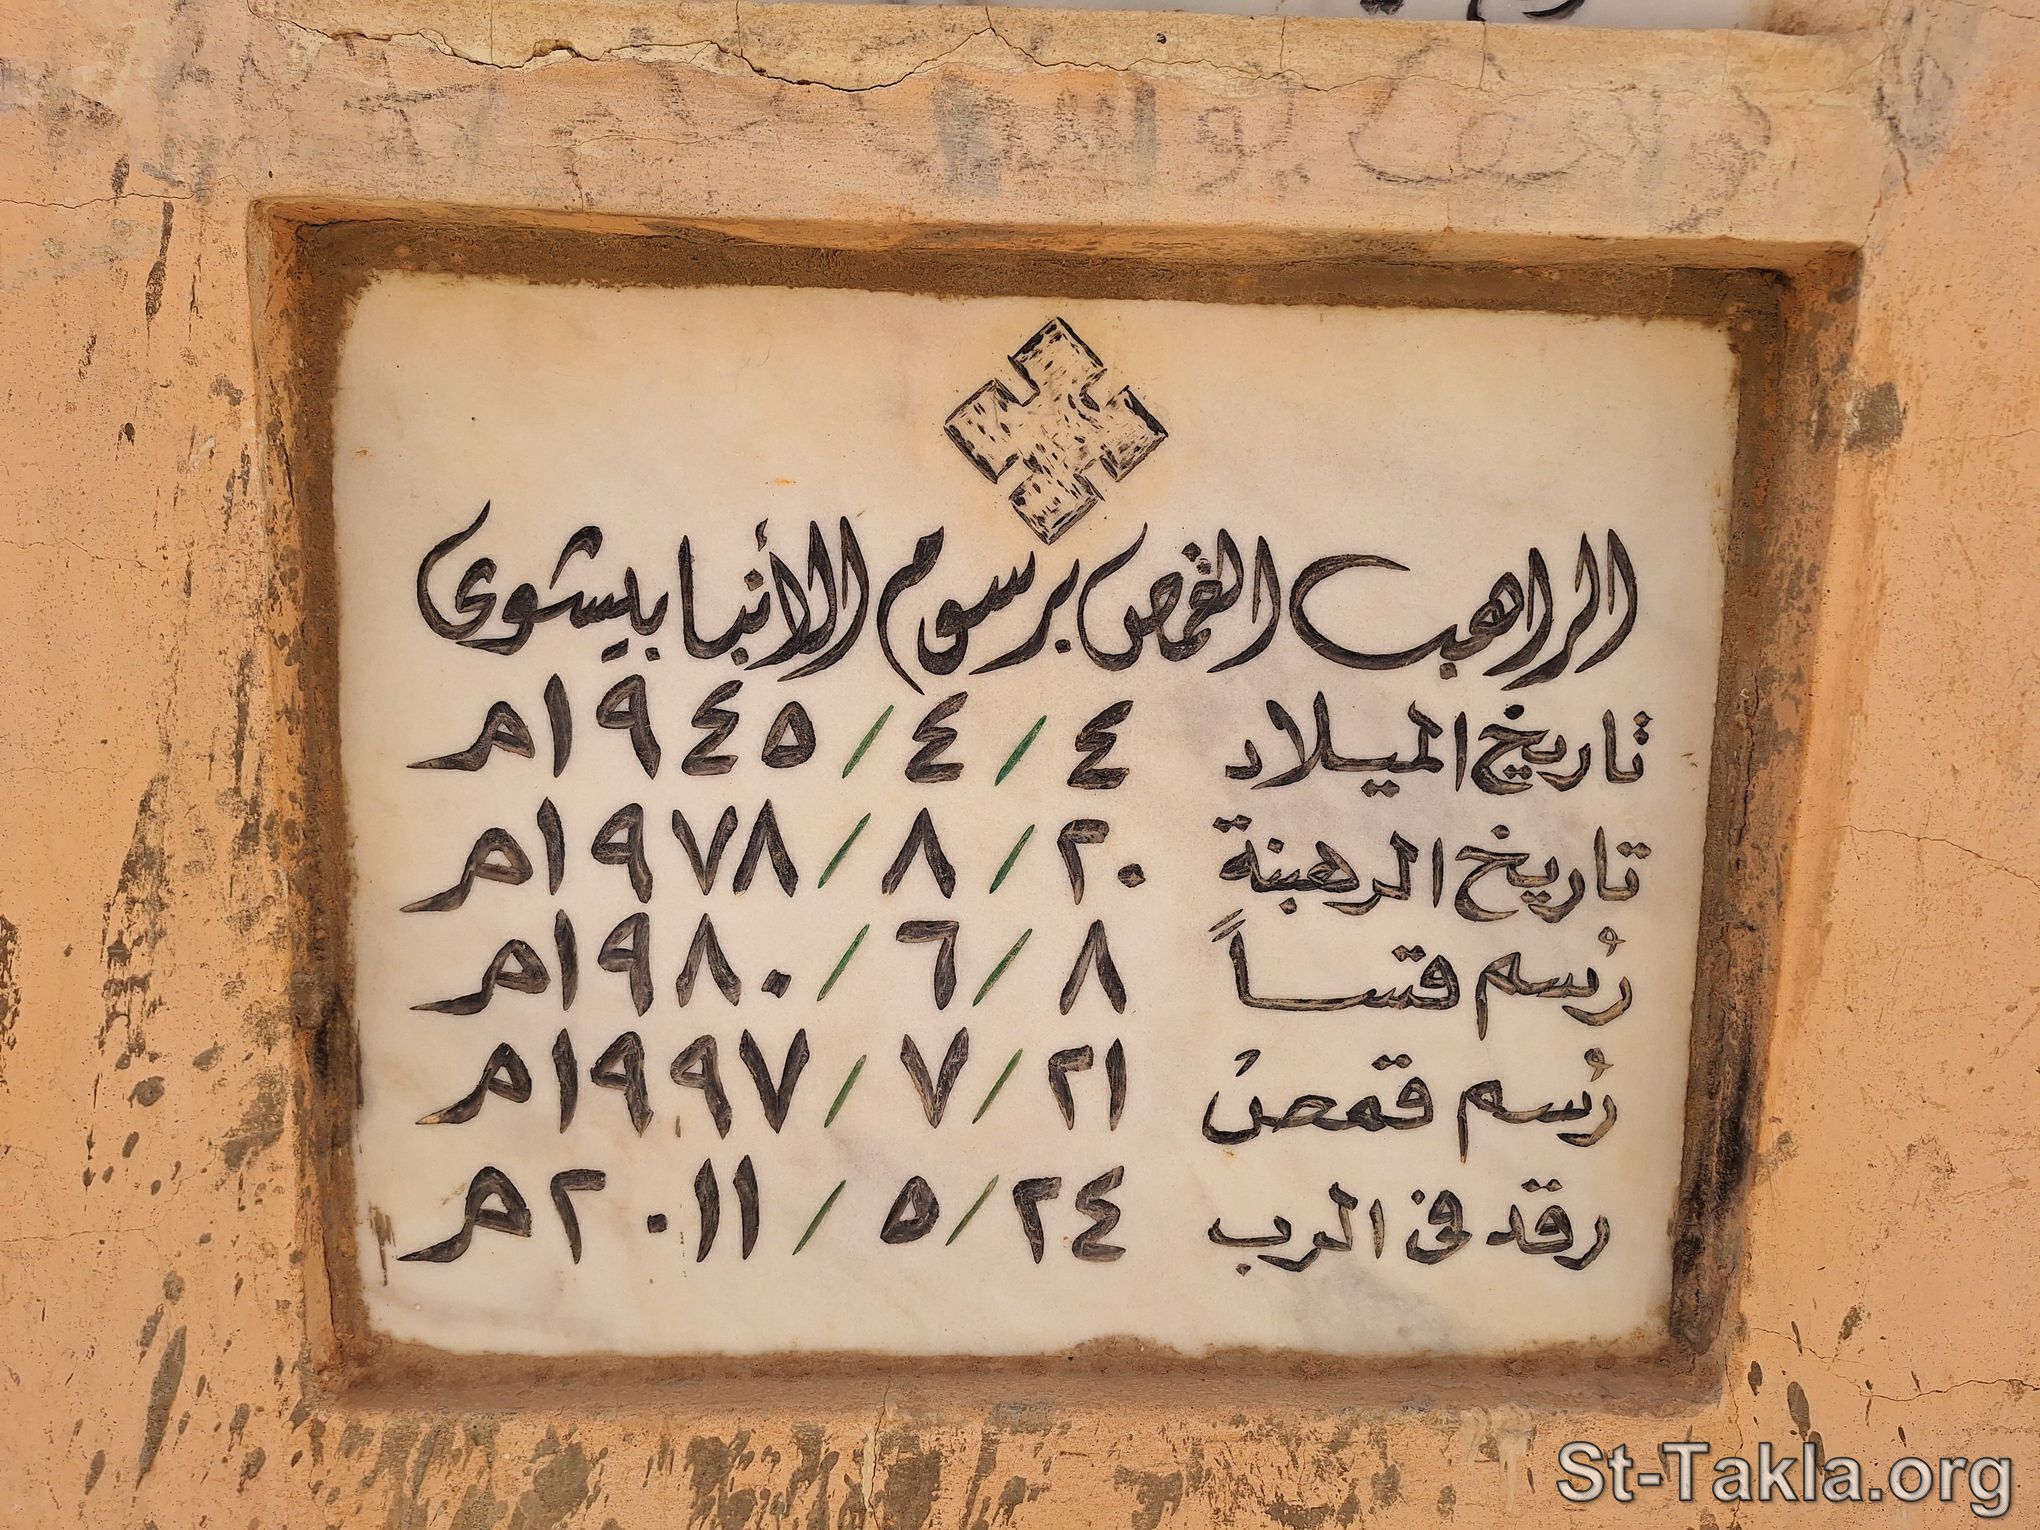 الراهب القمص برسوم الأنبا بيشوى
تاريخ الميلاد ٤ / ٤ / ١٩٤٥م
تاريخ الرهبنة ٢٠ / ٨ / ١٩٧٨م
رُسم قساً ٨ / ٦ / ١٩٨٠م
رُسم قمصُ ٢١ / ٧ / ١٩٩٧م
رقد فى الرب ٢٤ / ٥ / ٢٠١١م
St-Takla.org